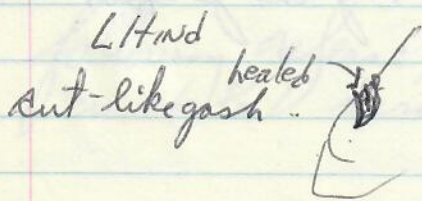 L Hind
healed
cut-like gash..